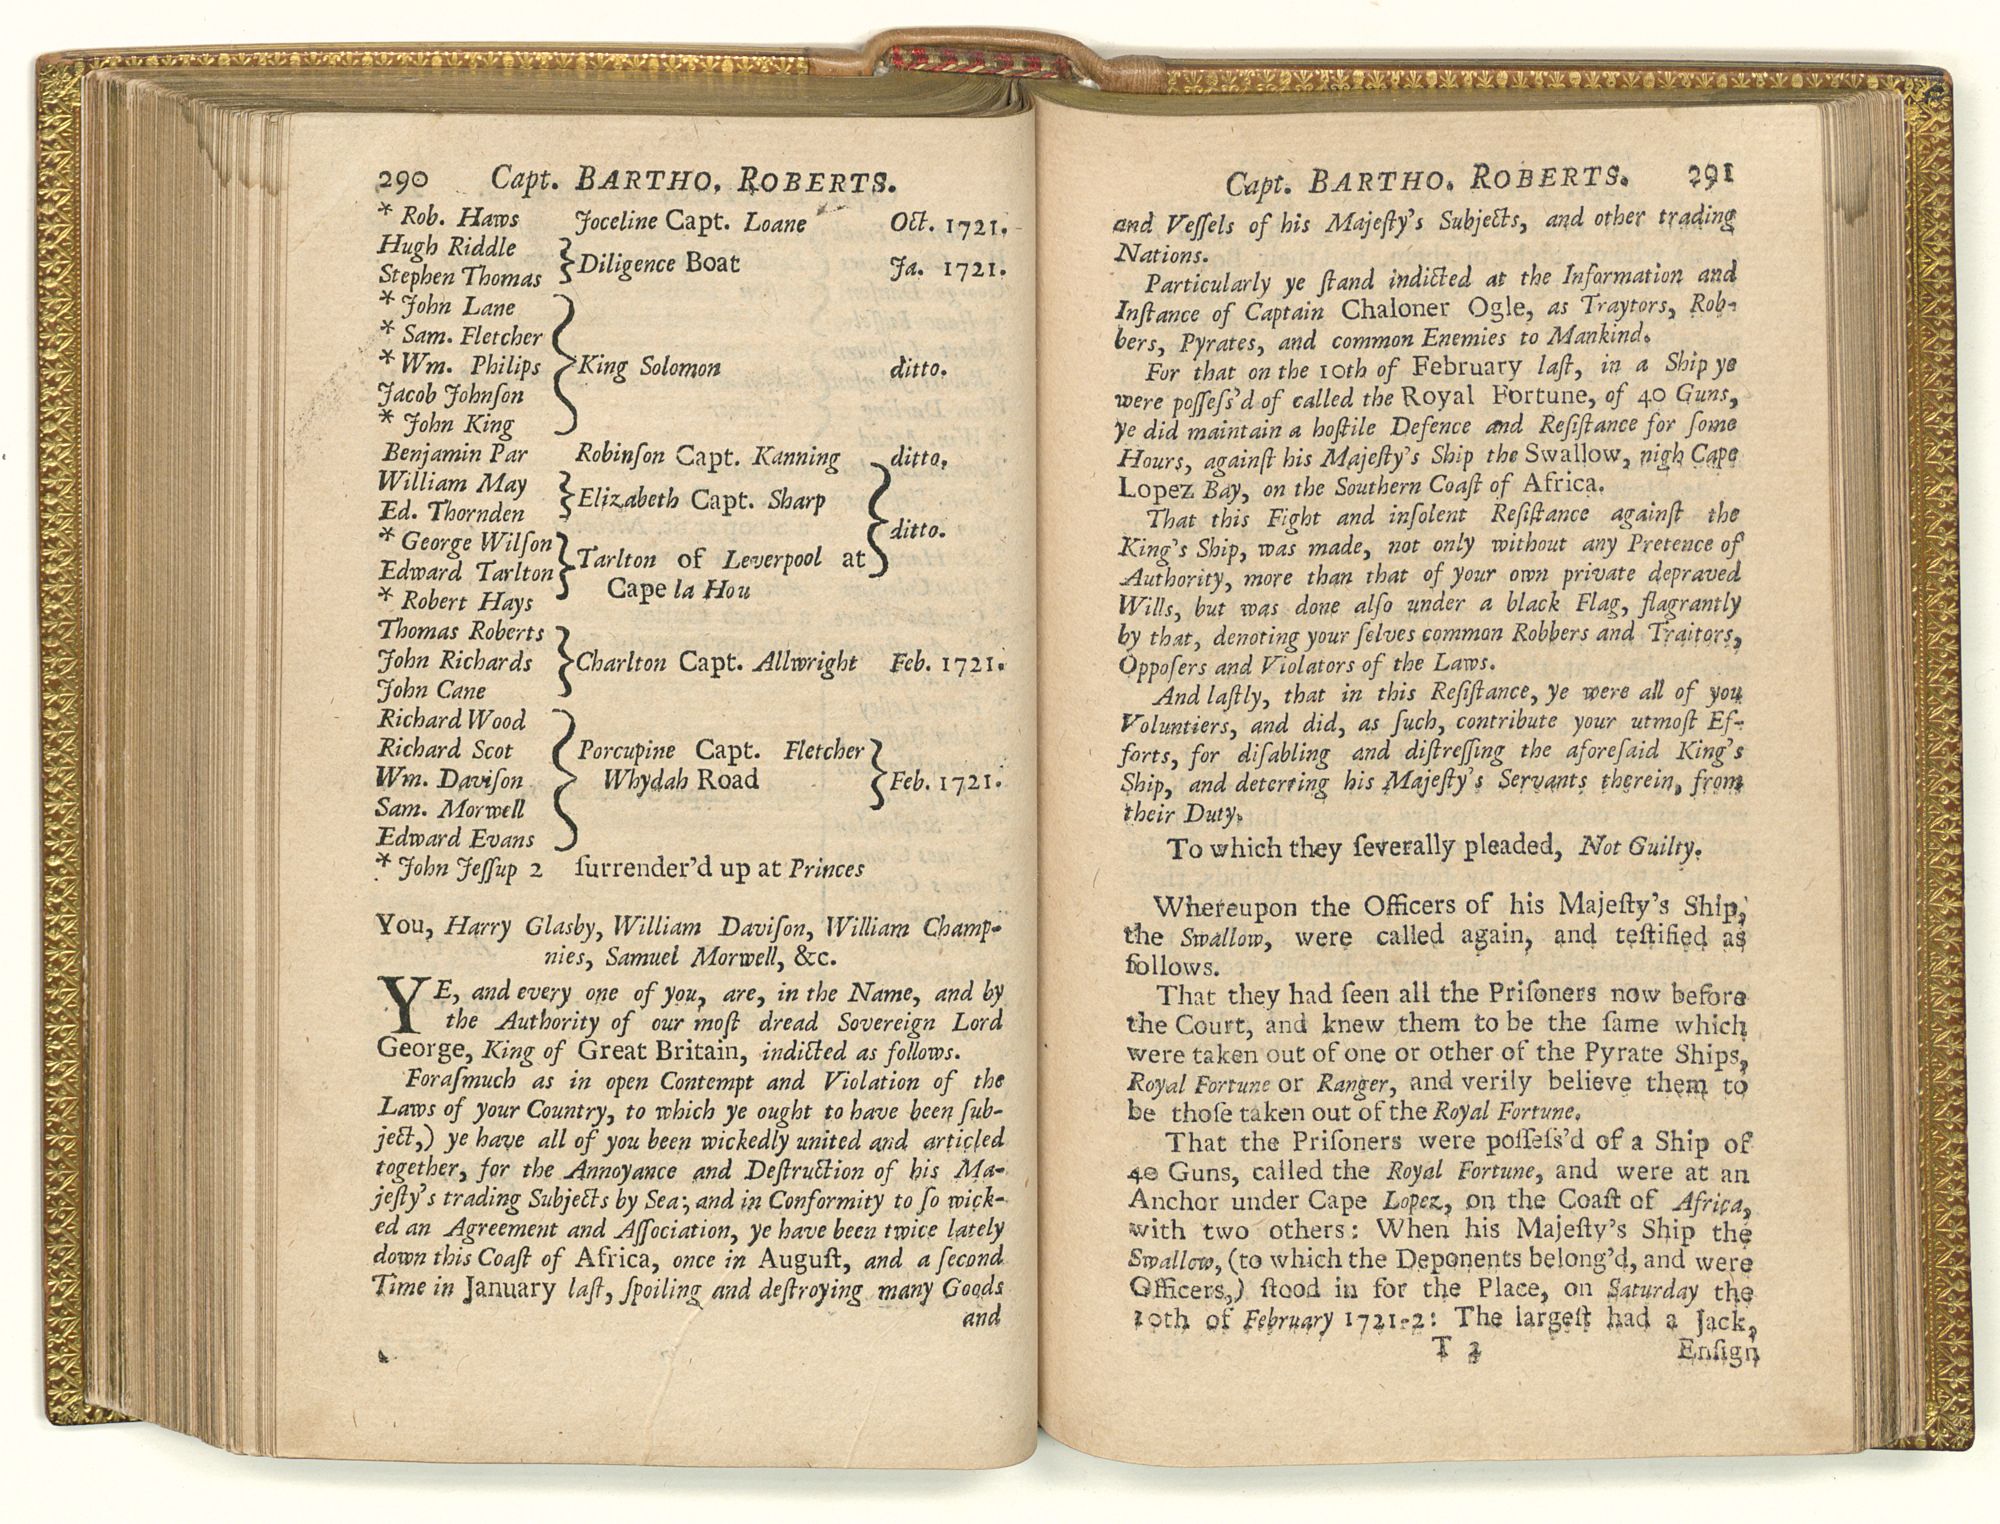 290 Capt. BARTHO. ROBERTS.
* Rob. Haws Joceline Capt. Loane Oct. 1721.
Hugh Riddle
Stephen Thomas } Diligence Boat Ja. 1721.
* John Lane
* Sam. Fletcher
* Wm. Philips } King Solomon ditto.
Jacob Johnſon
* John King
Benjamin Par Robinſon Capt. Kanning ditto.
William May
Ed. Thornden } Elizabeth Capt. Sharp
* George Wilſon } ditto.
Edward Tarlton } Tarlton of Leverpool at
* Robert Hays Cape la Hou
Thomas Roberts
John Richards } Charlton Capt. Allwright Feb. 1721.
John Cane
Richard Wood
Richard Scot } Porcupine Capt. Fletcher
Wm. Daviſon Whydah Road } Feb. 1721.
Sam. Morwell
Edward Evans
* John Jeſſup 2 ſurrender'd up at Princes
You, Harry Glasby, William Daviſon, William Champ-
nies, Samuel Morwell, &c.
YE, and every one of you, are, in the Name, and by
the Authority of our moſt dread Sovereign Lord
George, King of Great Britain, indicted as follows.
Foraſmuch as in open Contempt and Violation of the
Laws of your Country, to which ye ought to have been ſub-
ject,) ye have all of you been wickedly united and articled
together, for the Annoyance and Deſtruction of his Ma-
jeſty's trading Subjects by Sea; and in Conformity to ſo wick-
ed an Agreement and Aſſociation, ye have been twice lately
down this Coaſt of Africa, once in Auguſt, and a ſecond
Time in January laſt, ſpoiling and deſtroying many Goods
and
Capt. BARTHO. ROBERTS. 291
and Veſſels of his Majeſty's Subjects, and other trading
Nations.
Particularly ye ſtand indicted at the Information and
Inſtance of Captain Chaloner Ogle, as Traytors, Rob-
bers, Pyrates, and common Enemies to Mankind.
For that on the 10th of February laſt, in a Ship ye
were poſſeſs'd of called the Royal Fortune, of 40 Guns,
ye did maintain a hoſtile Defence and Reſiſtance for ſome
Hours, againſt his Majeſty's Ship the Swallow, nigh Cape
Lopez Bay, on the Southern Coaſt of Africa.
That this Fight and inſolent Reſiſtance againſt the
King's Ship, was made, not only without any Pretence of
Authority, more than that of your own private depraved
Wills, but was done alſo under a black Flag, flagrantly
by that, denoting your ſelves common Robbers and Traitors,
Oppoſers and Violators of the Laws.
And laſtly, that in this Reſiſtance, ye were all of you
Voluntiers, and did, as ſuch, contribute your utmoſt Ef-
forts, for diſabling and diſtreſſing the aforeſaid King's
Ship, and deterring his Majeſty's Servants therein, from
their Duty.
To which they ſeverally pleaded, Not Guilty.
Whereupon the Officers of his Majeſty's Ship,
the Swallow, were called again, and teſtified as
follows.
That they had ſeen all the Priſoners now before
the Court, and knew them to be the ſame which
were taken out of one or other of the Pyrate Ships,
Royal Fortune or Ranger, and verily believe them to
be thoſe taken out of the Royal Fortune.
That the Priſoners were poſſeſs'd of a Ship of
40 Guns, called the Royal Fortune, and were at an
Anchor under Cape Lopez, on the Coaſt of Africa,
with two others: When his Majeſty's Ship the
Swallow, (to which the Deponents belong'd, and were
Officers,) ſtood in for the Place, on Saturday the
10th of February 1721-2: The largeſt had a Jack,
T 2 Enſign